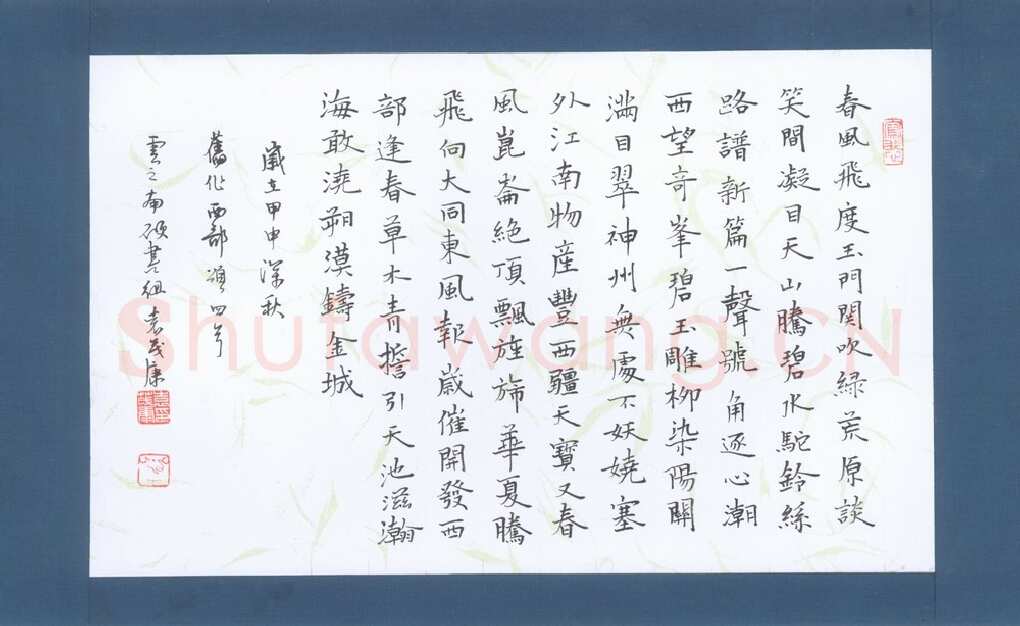 春風飛度玉門関吹緑荒原談
笑間凝目天山騰碧水駝鈴絲
路譜新篇一聲號角逐心潮
西望奇峯碧玉雕柳染陽關
滿目翠神州無處不妖嬈塞
外江南物産豐西疆天寶又春
風崑崙絶頂飄旌旆華夏騰
飛向大同東風報歲催開發西
部逢春草木青擔引天池滋瀚
海敢澆朔漠鑄金城
歲在甲申深秋
舊作西部頌四首
雲之南硬書 袁茂康
Shufawang.cn